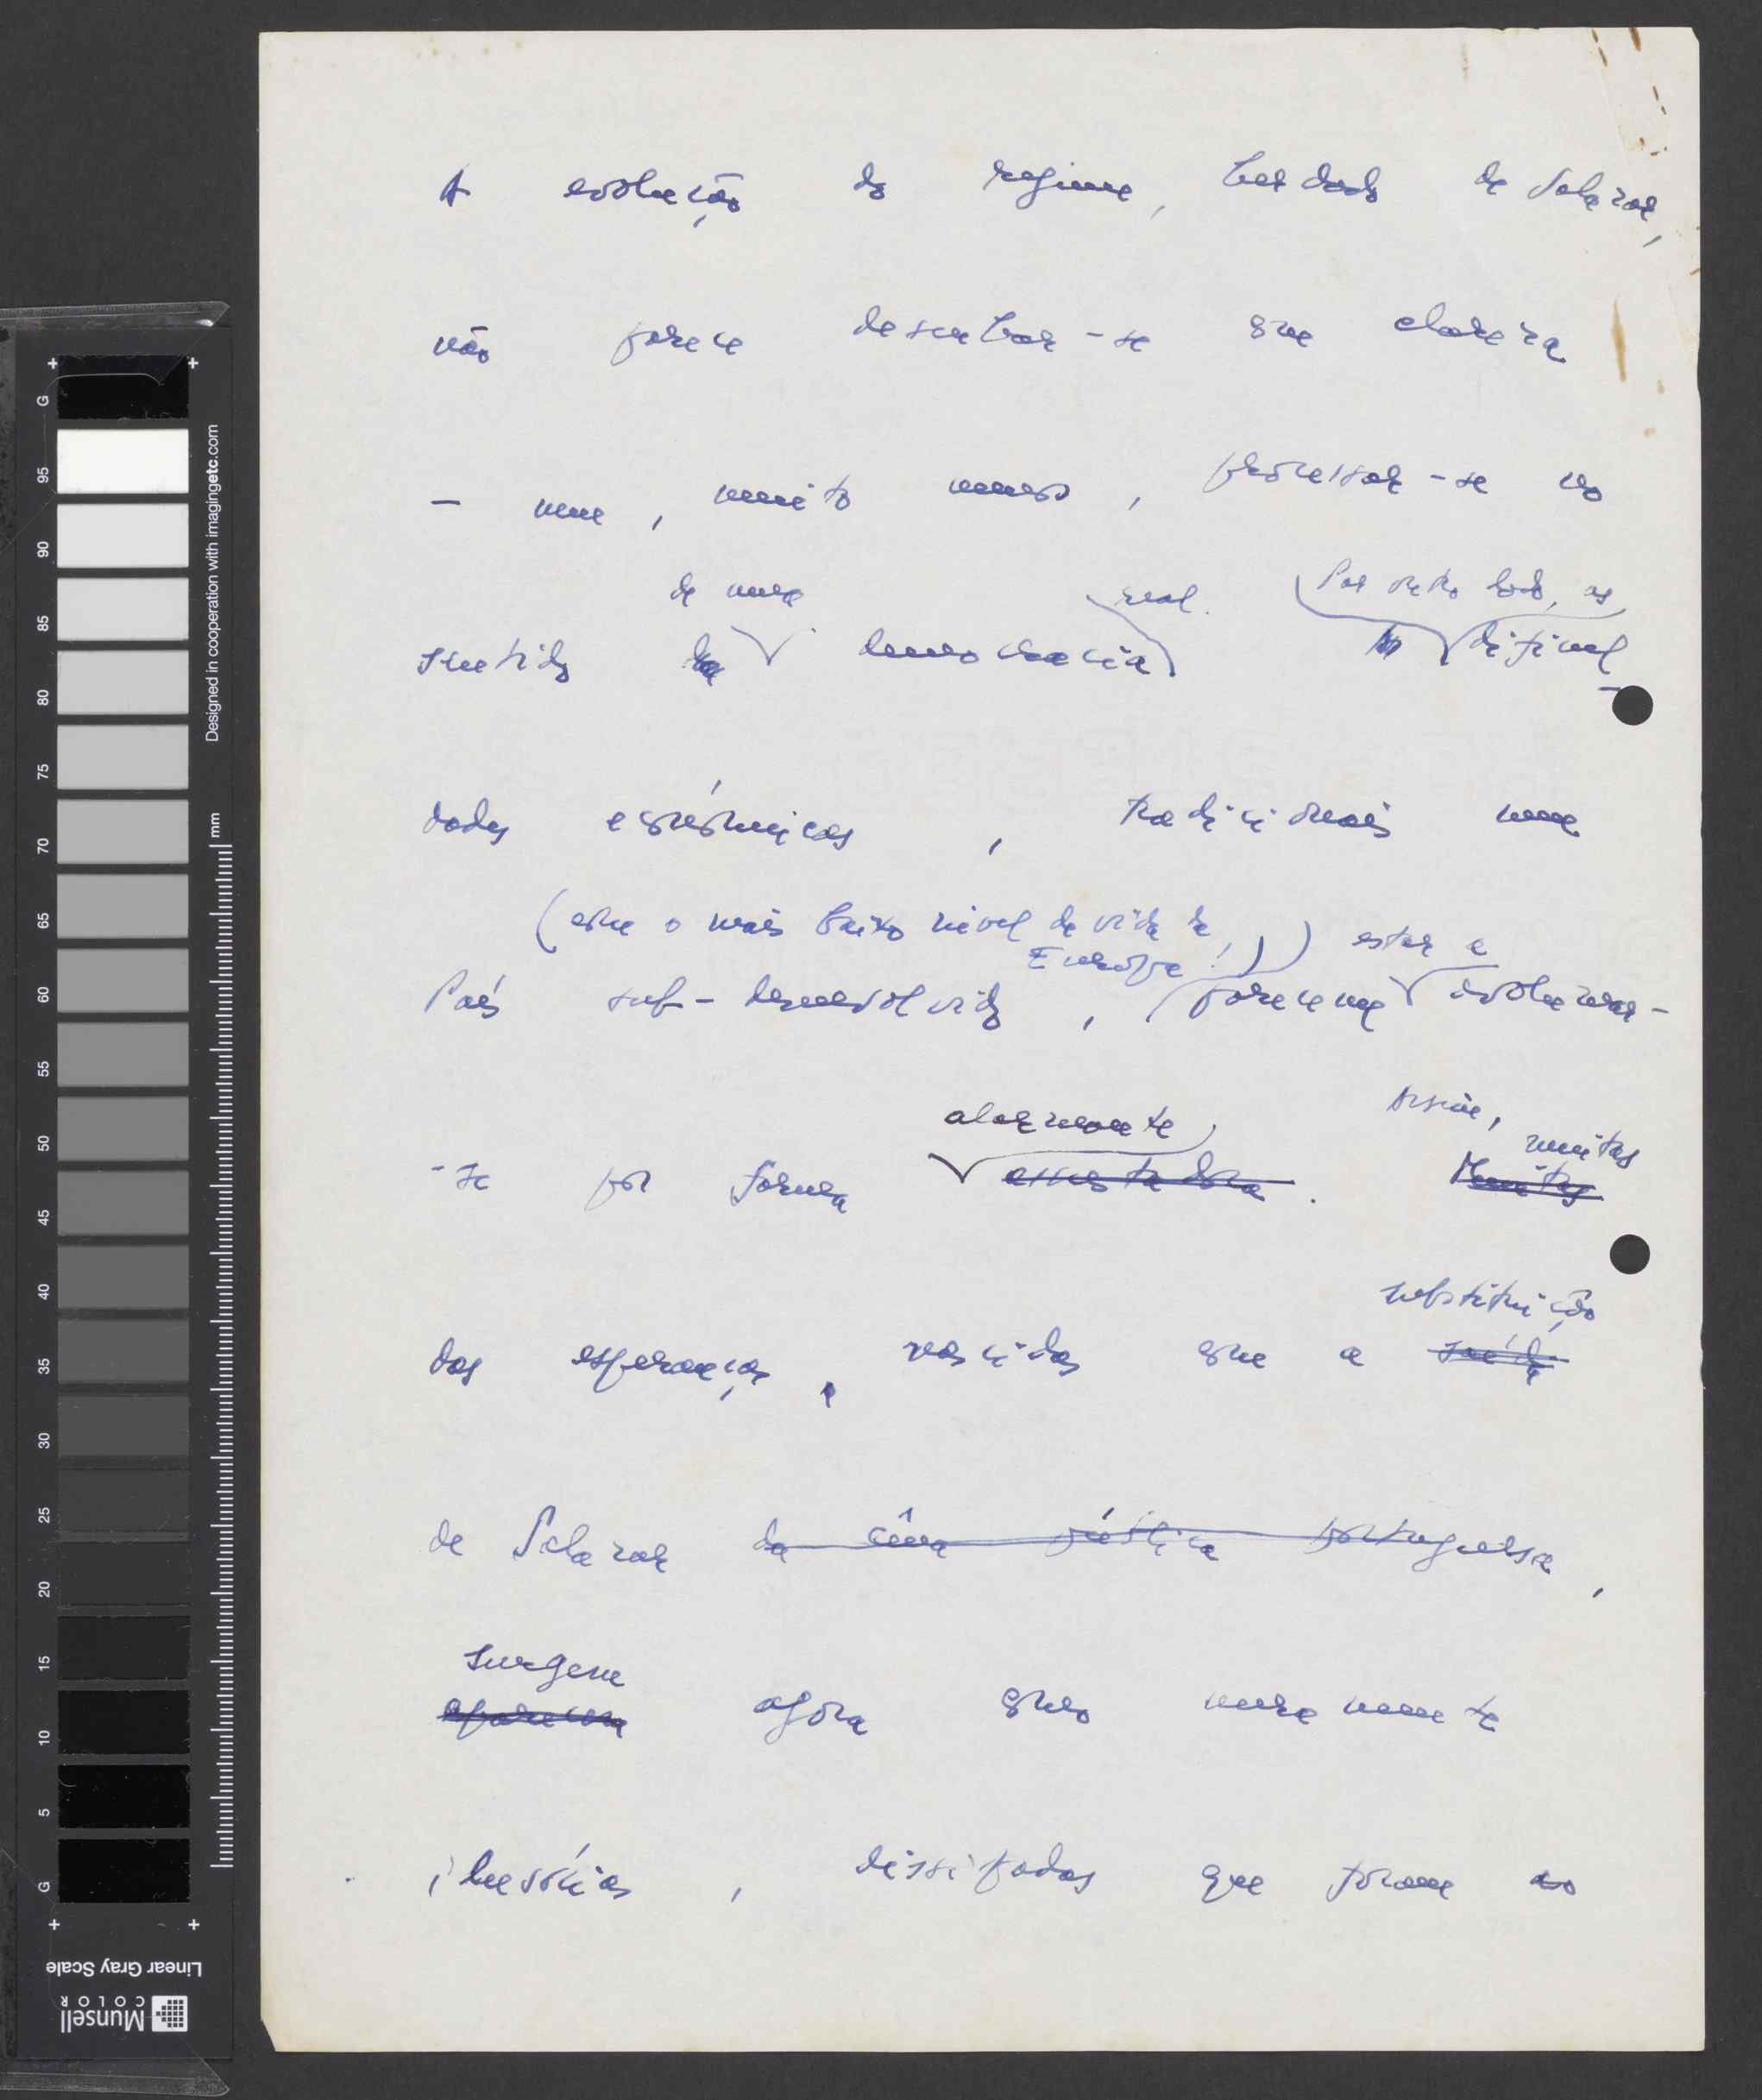 A evolução do regime, herdado de Salazar,
não parece desenhar-se com clareza
– nem, muito menos, processar-se no
de uma real. Por outro lado, as
sentido da democracia dificul-
dades económicas, tradicionais num
(com o mais baixo nível de vida da
Europa!) estar a
País sub-desenvolvido, parecem avolumar-
-se por forma
alarmante Assim,
muitas
assustadora. Muitas
substituição
das esperanças, nascidas com a saída
de Salazar da cena política portuguesa,
surgem
aparecem agora como meramente
ilusórias, dissipadas que foram ao
Designed in cooperation with imagingetc.com
mm
G 95 90 85 80 75 70 65 60 55 50 45 40 35 30 25 20 15 10 5 G
Linear Gray Scale
Munsell
COLOR